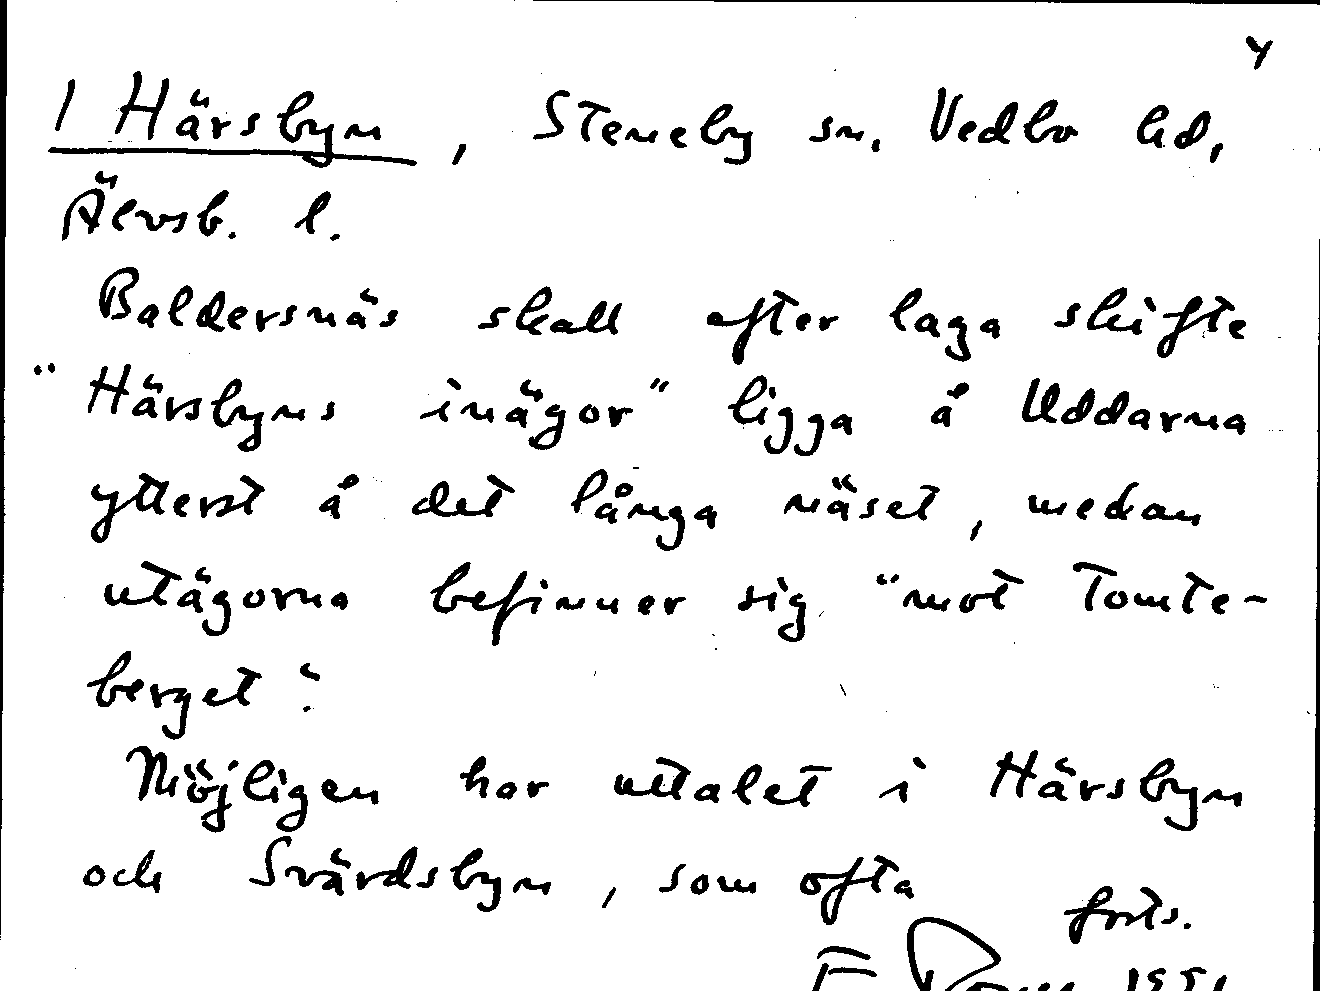 4
1 Härsbyn, Steneby sn. Vedbo hd,
Älvsb. l.
Baldersnäs skall efter laga skifte
"Härsbyns inägor" ligga å Uddarna
ytterst å det långa näset, medan
utägorna befinner sig "mot Tomte-
berget".
Möjligen har uttalet i Härsbyn
och Svärdsbyn, som ofta
forts.